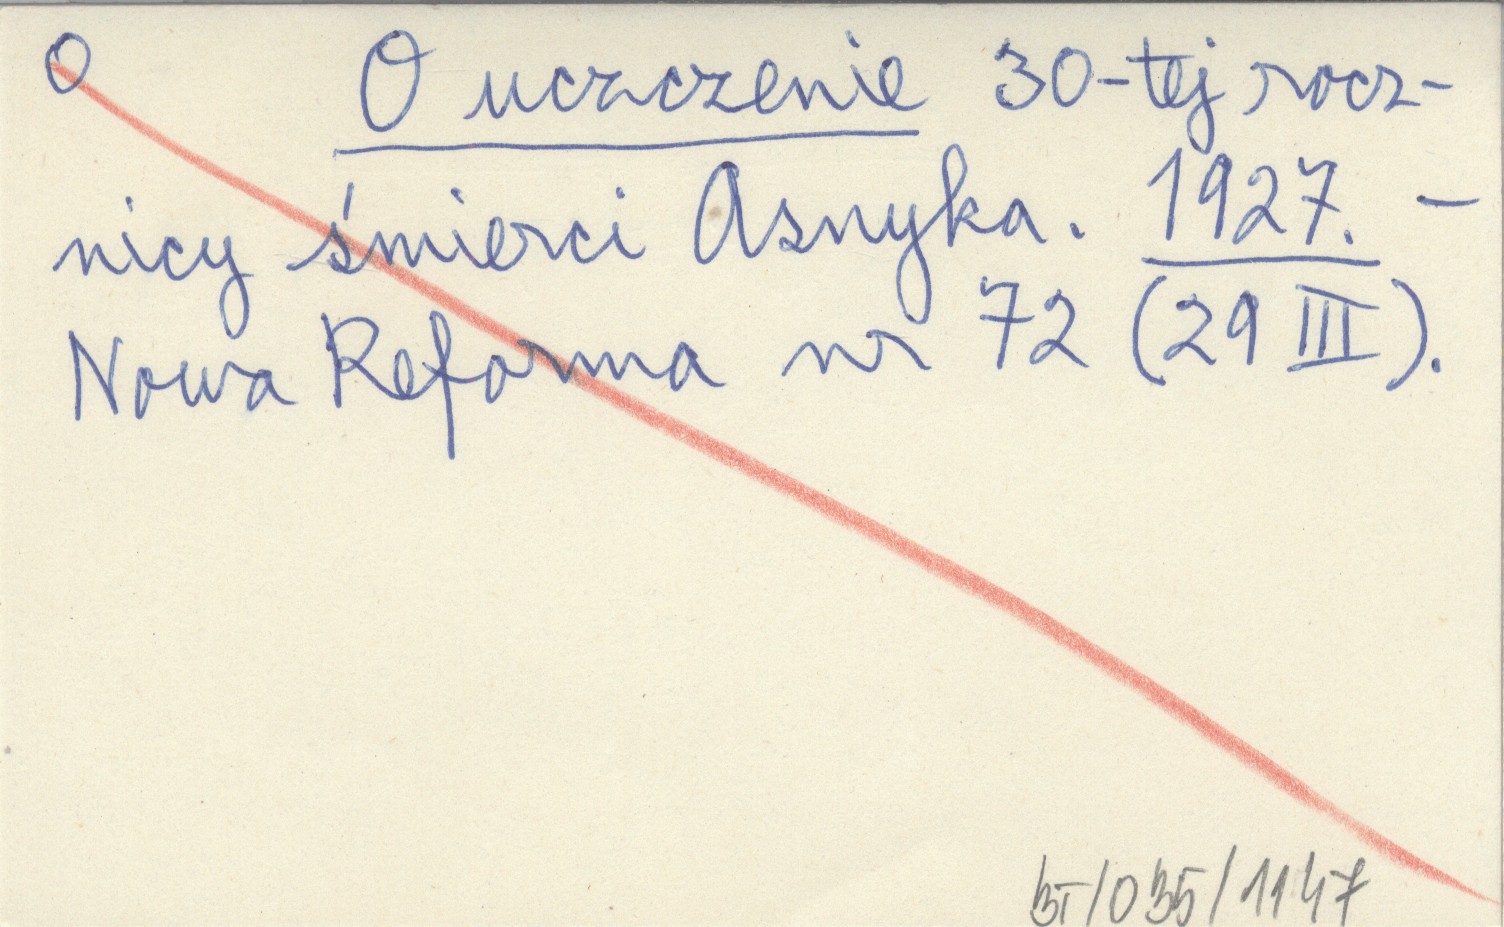 O O uczczenie 30-tej rocz-
nicy śmierci Asnyka. 1927. -
Nowa Reforma nr 72 (29 III).
BT/035/1147